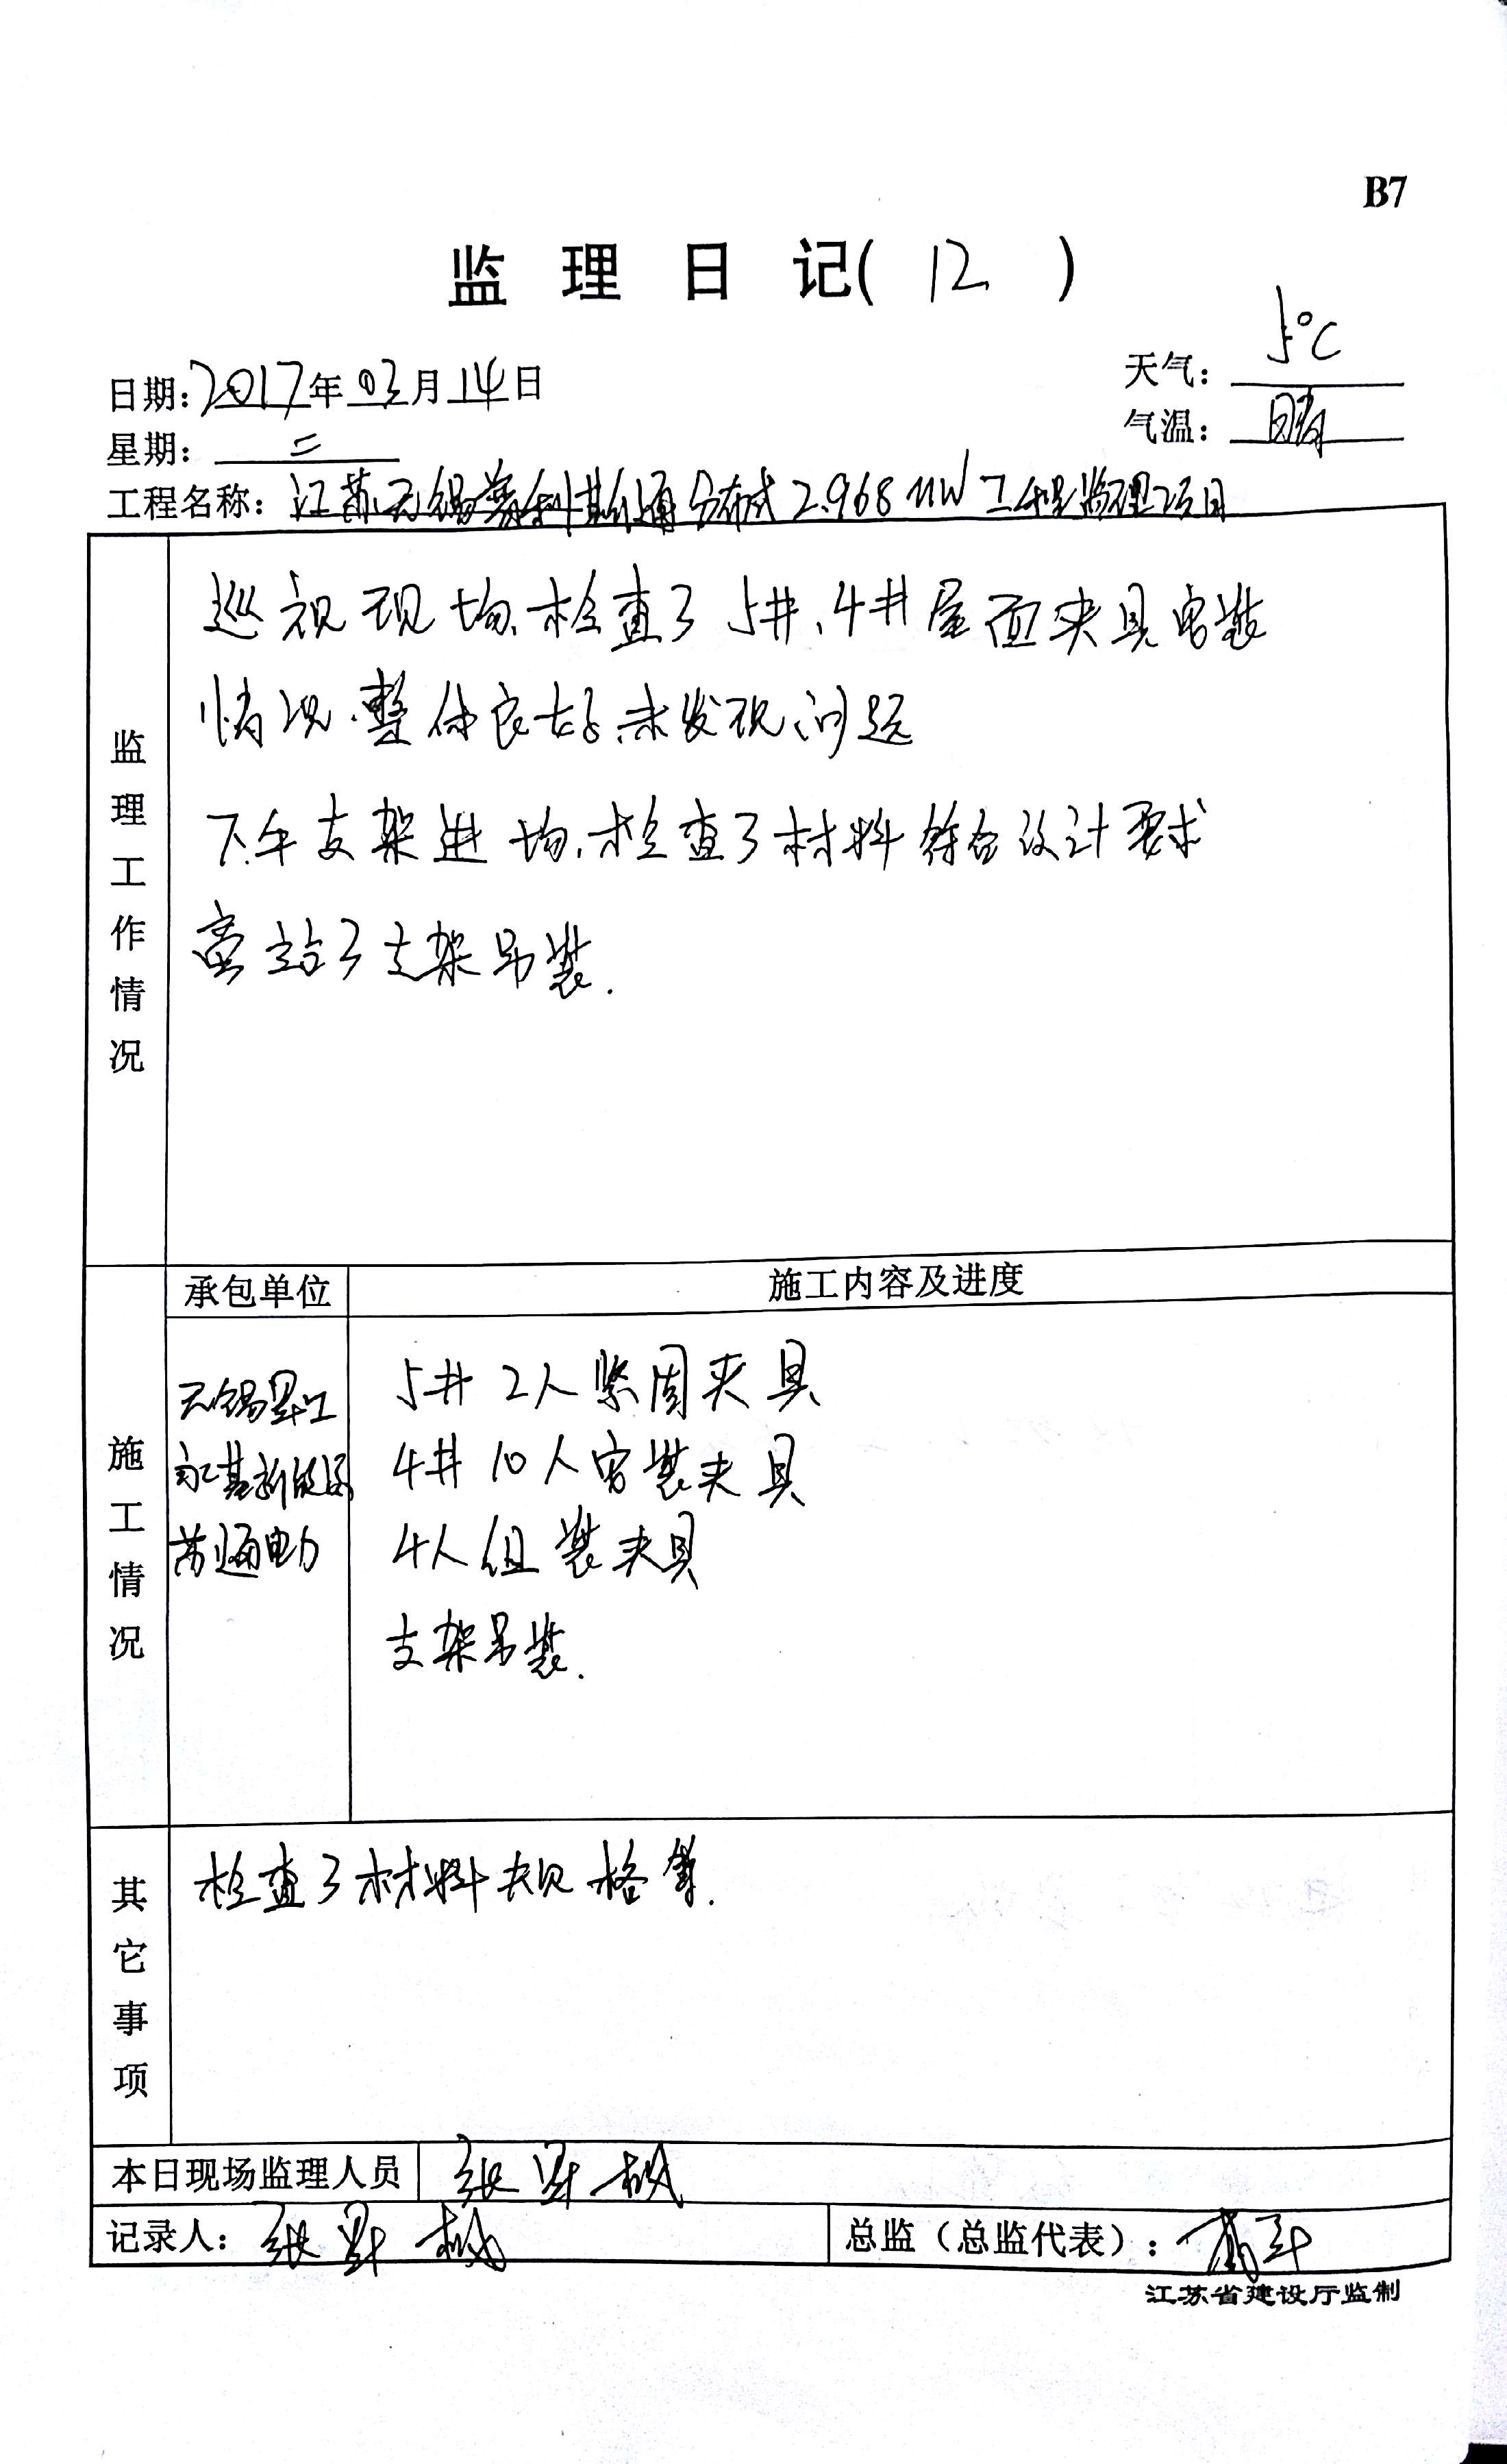 B7
监理日记(12)
天气：5℃
日期：2017年03月14日
气温：晴
星期：二
工程名称：江苏无锡赛利斯通分布式2.968MW工程监理项目
监理工作情况
巡视现场、检查了5井、4井屋面夹具安装
情况、整体良好、未发现问题
下午支架进场、检查了材料符合设计要求
旁站了支架吊装.
施工情况
承包单位
施工内容及进度
无锡
新能源
普通电力
5井2人紧固夹具
4井10人安装夹具
4人组装夹具
支架吊装.
其它事项
检查了材料规格等.
本日现场监理人员
张
记录人：张
总监（总监代表）：
江苏省建设厅监制